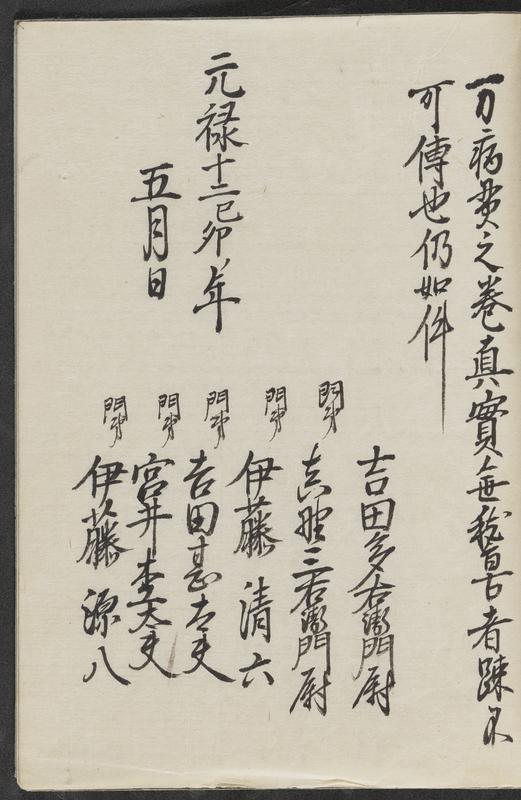 一万病円之巻真實無稽古者疎不
可傳也仍如件
元禄十二己卯年
五月日
吉田多右衛門尉
門弟 真野三右衛門尉
門弟 伊藤清六
門弟 吉田甚太夫
門弟 宮井杢太夫
門弟 伊藤源八